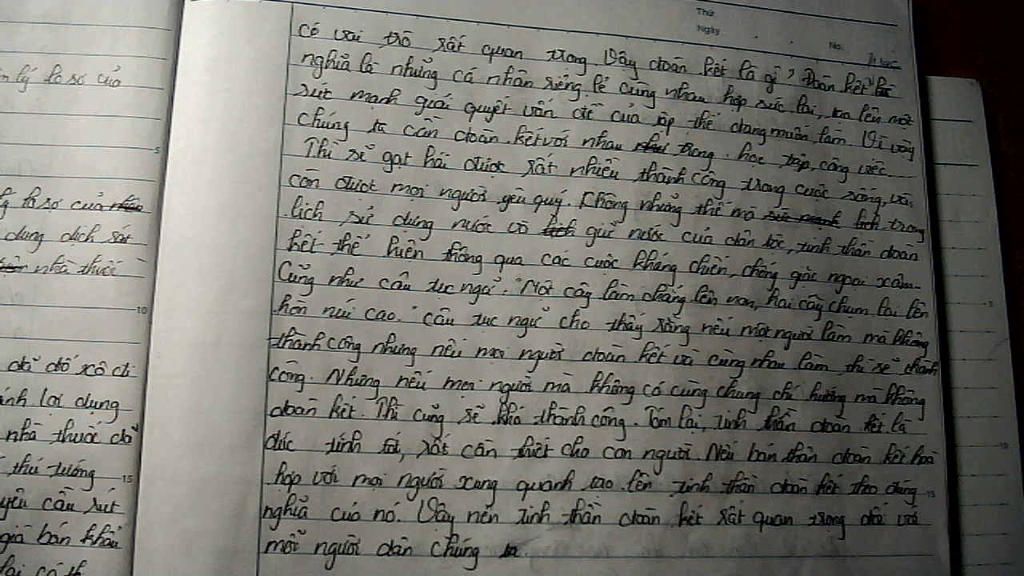 Thứ
Ngày
No.
có vai trò rất quan trong Vây đoàn kết là gì, Đoàn kết là
nghĩa là những cá nhân riêng lẻ cùng nhau hợp sức lại, tạo lên một
sức mạnh giải quyết vấn đề của tập thể đang muốn làm Vì vậy
chúng ta cần đoàn kết với nhau trong học tập, công việc
Thì sẽ gạt hái được rất nhiều thành công trong cuộc sống, và
còn được mọi người yêu quý. Không những thế mà lịch trong
lịch sử dựng nước vò giữ nước của dân tộc, tinh thần đoàn
kết thể hiện thông qua các cuộc kháng chiến, chống giặc ngoại xâm.
Cũng như câu tục ngữ: "Một cây làm chẳng lên non, ba cây chụm lại lên
hòn núi cao." câu tục ngữ cho thấy rằng nếu một người làm mà không
thành công nhưng nếu mọi người đoàn kết và cùng nhau làm thì sẽ thành
công. Nhưng nếu mọi người mà không có cùng chung chí hướng mà không
đoàn kết. Thì cũng sẽ khó thành công. Tóm lại, tinh thần đoàn kết là
đức tính tốt, rất cần thiết cho con người. Nếu bản thân đoàn kết hoà
hợp với mọi người xung quanh tạo lên tinh thần đoàn kết theo đúng
nghĩa của nó. Vậy nên tinh thần đoàn kết rất quan trọng đối với
mỗi người dân chúng ta.
lý do sơ
dung dịch sát
nhà thuốc
lợi dụng
nhà thuốc
thủ tướng
yêu cầu
giá bán khẩu